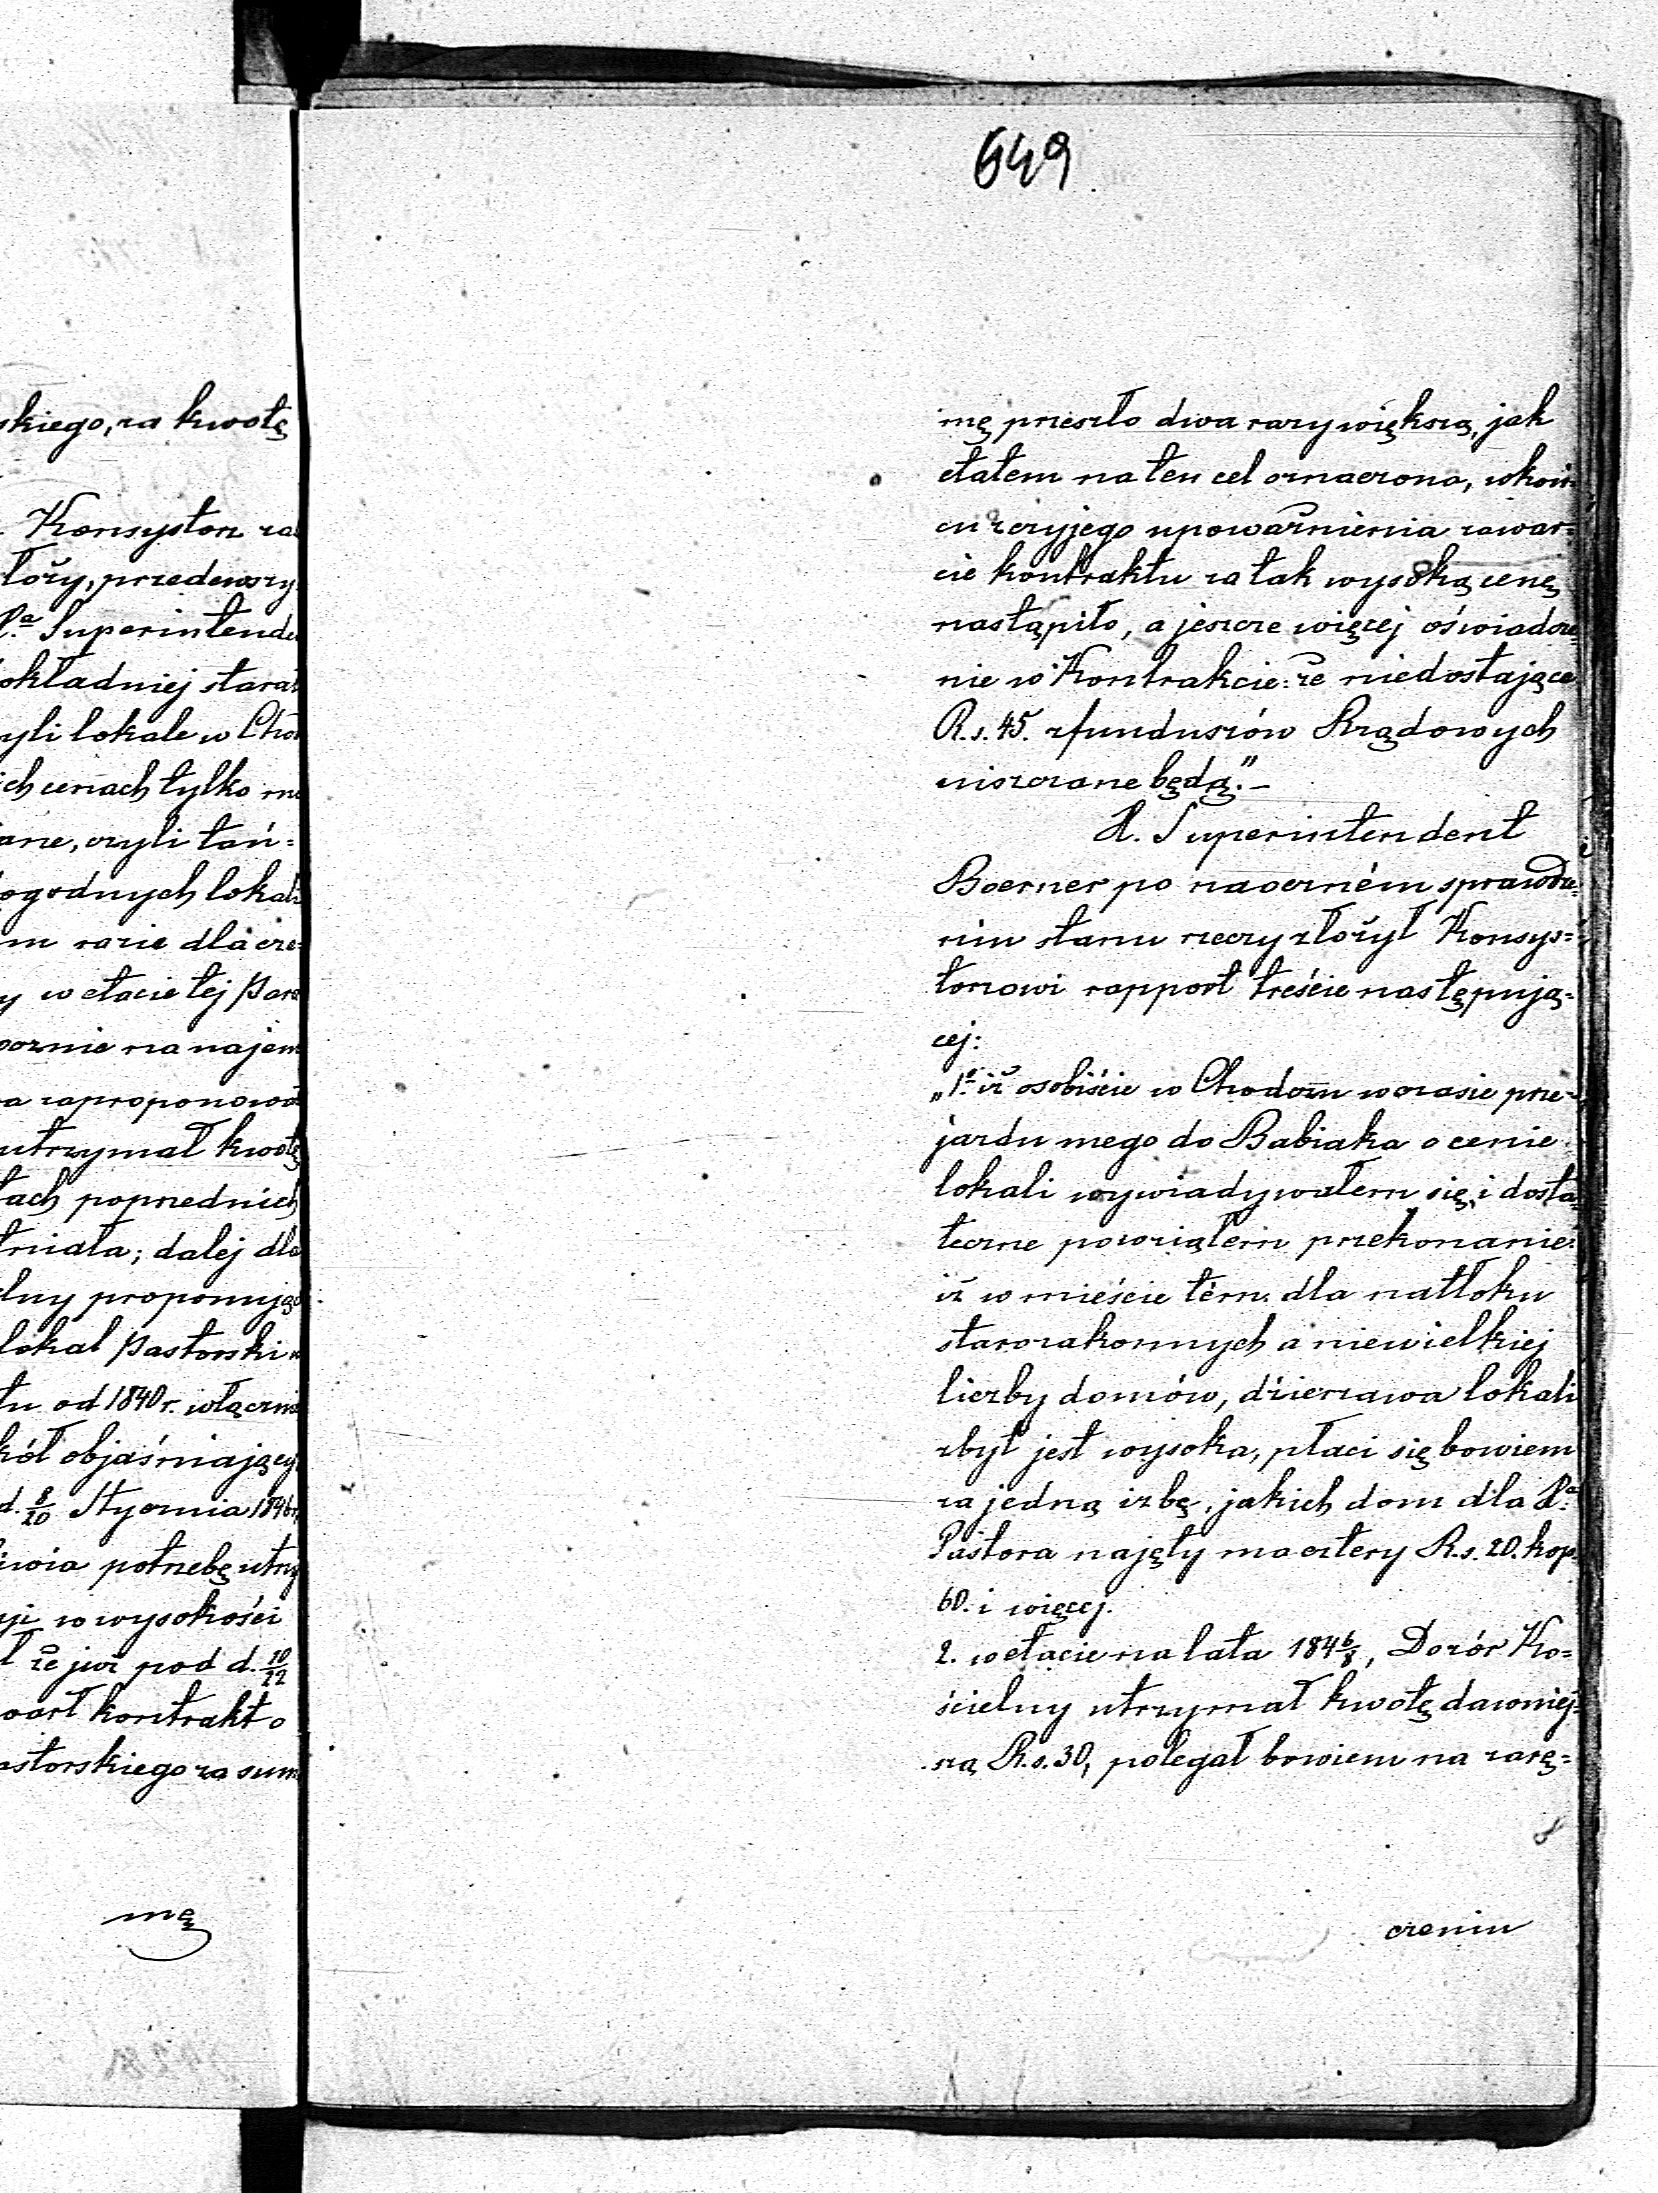 649
skiego, za kwotę
Konsystorz za
łoży, przedewszy
P.ª Superintende
okładniej starał
yli lokale w Chod
ich cenach tylko mo
ane, czyli tań=
ogodnych lokali
m razie dla cze=
y w etacie tej Para
ocznie na najem
a zaproponował
utrzymał kwotę
tach poprzednich
tniała; dalej dla
elny proponując
lokal Pastorski w
tu od 1840 r. włącznie
kół objaśniający
d. 8/20 Stycznia 1846 r.
iwia potrzebę utrzy
ji w wysokości
ł że już pod d. 10/22
warł kontrakt o
astorskiego za sum
mę
mę przeszło dwa razy większą, jak
etatem na ten cel oznaczona, w koń=
cu z czyjego upoważnienia zawar=
cie kontraktu za tak wysoką cenę
nastąpiło, a jeszcze więcej oświadcze=
nie w Kontrakcie: że niedostające
R.s. 45. z funduszów Rządowych
uiszczane będą." –
X. Superintendent
Boerner po naoczném sprawdze=
niu stanu rzeczy złożył Konsys=
torzowi rapport treście następują=
cej:
„1.º iż osobiście w Chodczu w czasie prze=
jazdu mego do Babiaka o cenie
lokali wywiadywałem się, i dosta=
teczne powziąłem przekonanie:
iż w mieście tém dla natłoku
starozakonnych a niewielkiej
liczby domów, dzierzawa lokali
zbyt jest wysoka, płaci się bowiem
za jedną izbę, jakich dom dla P.ª
Pastora najęty ma cztery R.s. 20. kop.
60. i więcej.
2. w etacie na lata 184 6/8, Dozór Ko=
ścielny utrzymał kwotę dawniej=
szą R.s. 30, polegał bowiem na zarę=
czeniu